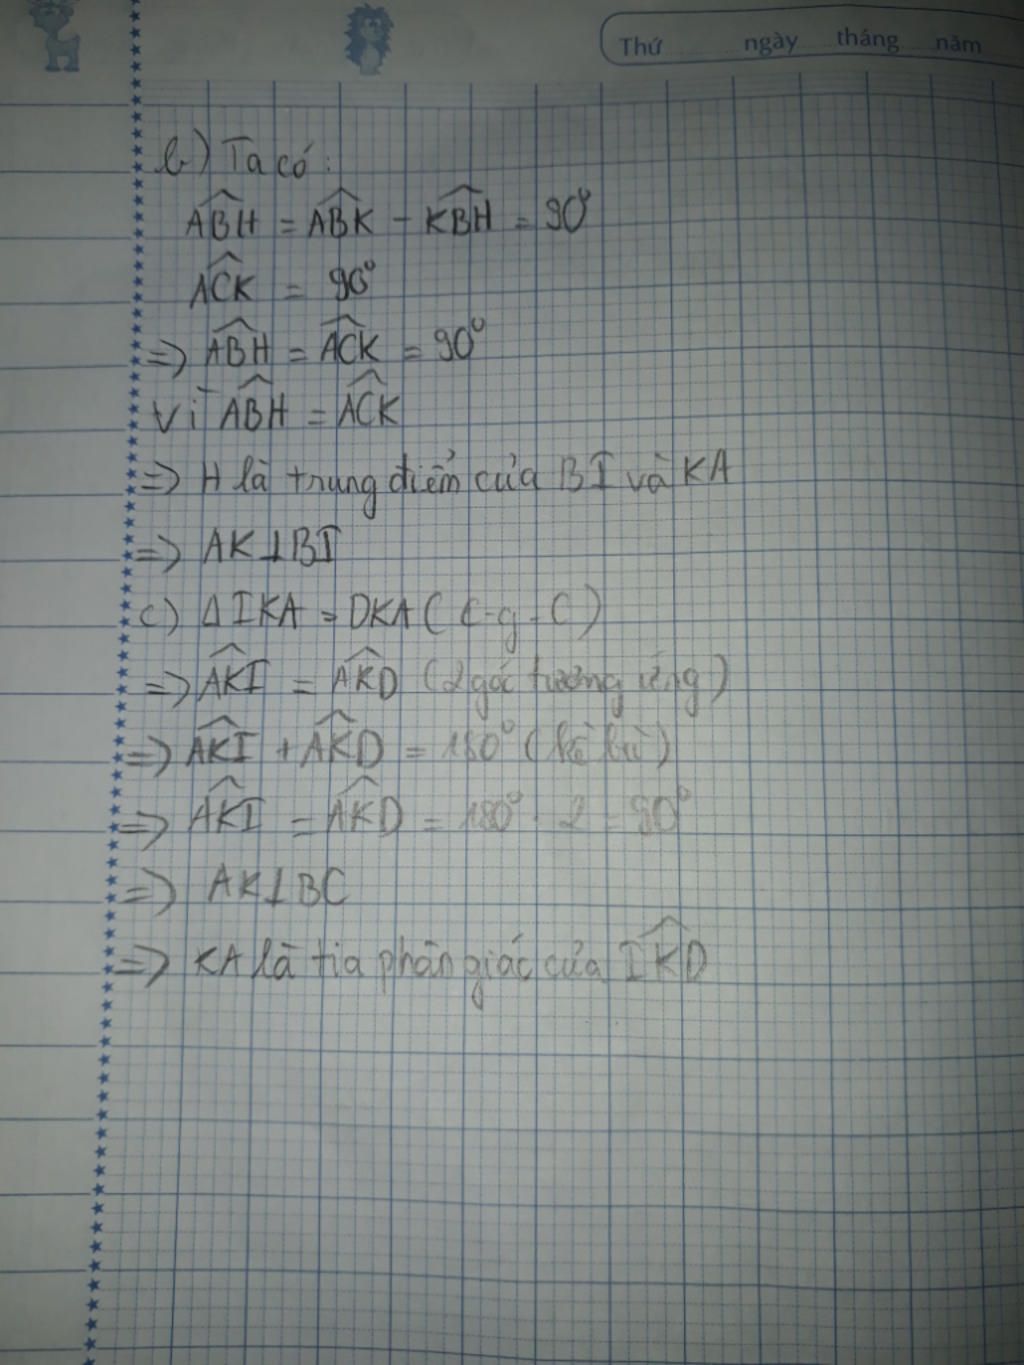 Thứ ngày tháng năm
b) Ta có:
\widehat{ABH} = \widehat{ABK} - \widehat{KBH} = 90°
\widehat{ACK} = 90°
=> \widehat{ABH} = \widehat{ACK} = 90°
Vì \widehat{ABH} = \widehat{ACK}
=> H là trung điểm của BI và KA
=> AK⊥BI
c) Δ IKA = DKA (c-g-c)
=> \widehat{AKI} = \widehat{AKD} (2 góc tương ứng)
=> \widehat{AKI} + \widehat{AKD} = 180° (kề bù)
=> \widehat{AKI} = \widehat{AKD} = 180° : 2 = 90°
=> AK⊥BC
=> KA là tia phân giác của \widehat{IKD}